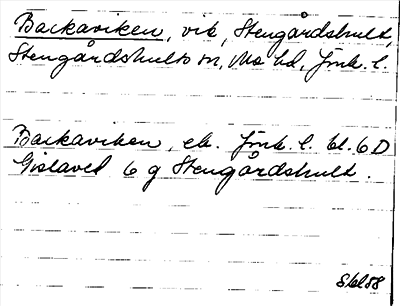 Backaviken, vik, Stengårdshult,
Stengårdshults sn, Mo hd, Jönk. l.
Backaviken, ek. Jönk. l. bl. 6 D
Gislaved 6 g Stengårdshult.